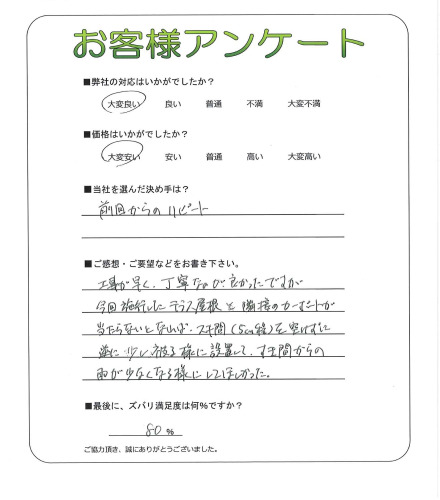 お客様アンケート
■弊社の対応はいかがでしたか?
大変良い 良い 普通 不満 大変不満
■価格はいかがでしたか?
大変安い 安い 普通 高い 大変高い
■当社を選んだ決め手は?
前回からのリピート
■ご感想・ご要望などをお書き下さい。
工事が早く、丁寧なのが良かったですが
今回施行したテラス屋根と隣接のカーポートが
当たらないとなれば、スキ間(5cm程)を空けずに
逆に少し被る様に設置して、すき間からの
雨が少なくなる様にしてほしかった。
■最後に、ズバリ満足度は何%ですか?
80 %
ご協力頂き、誠にありがとうございました。